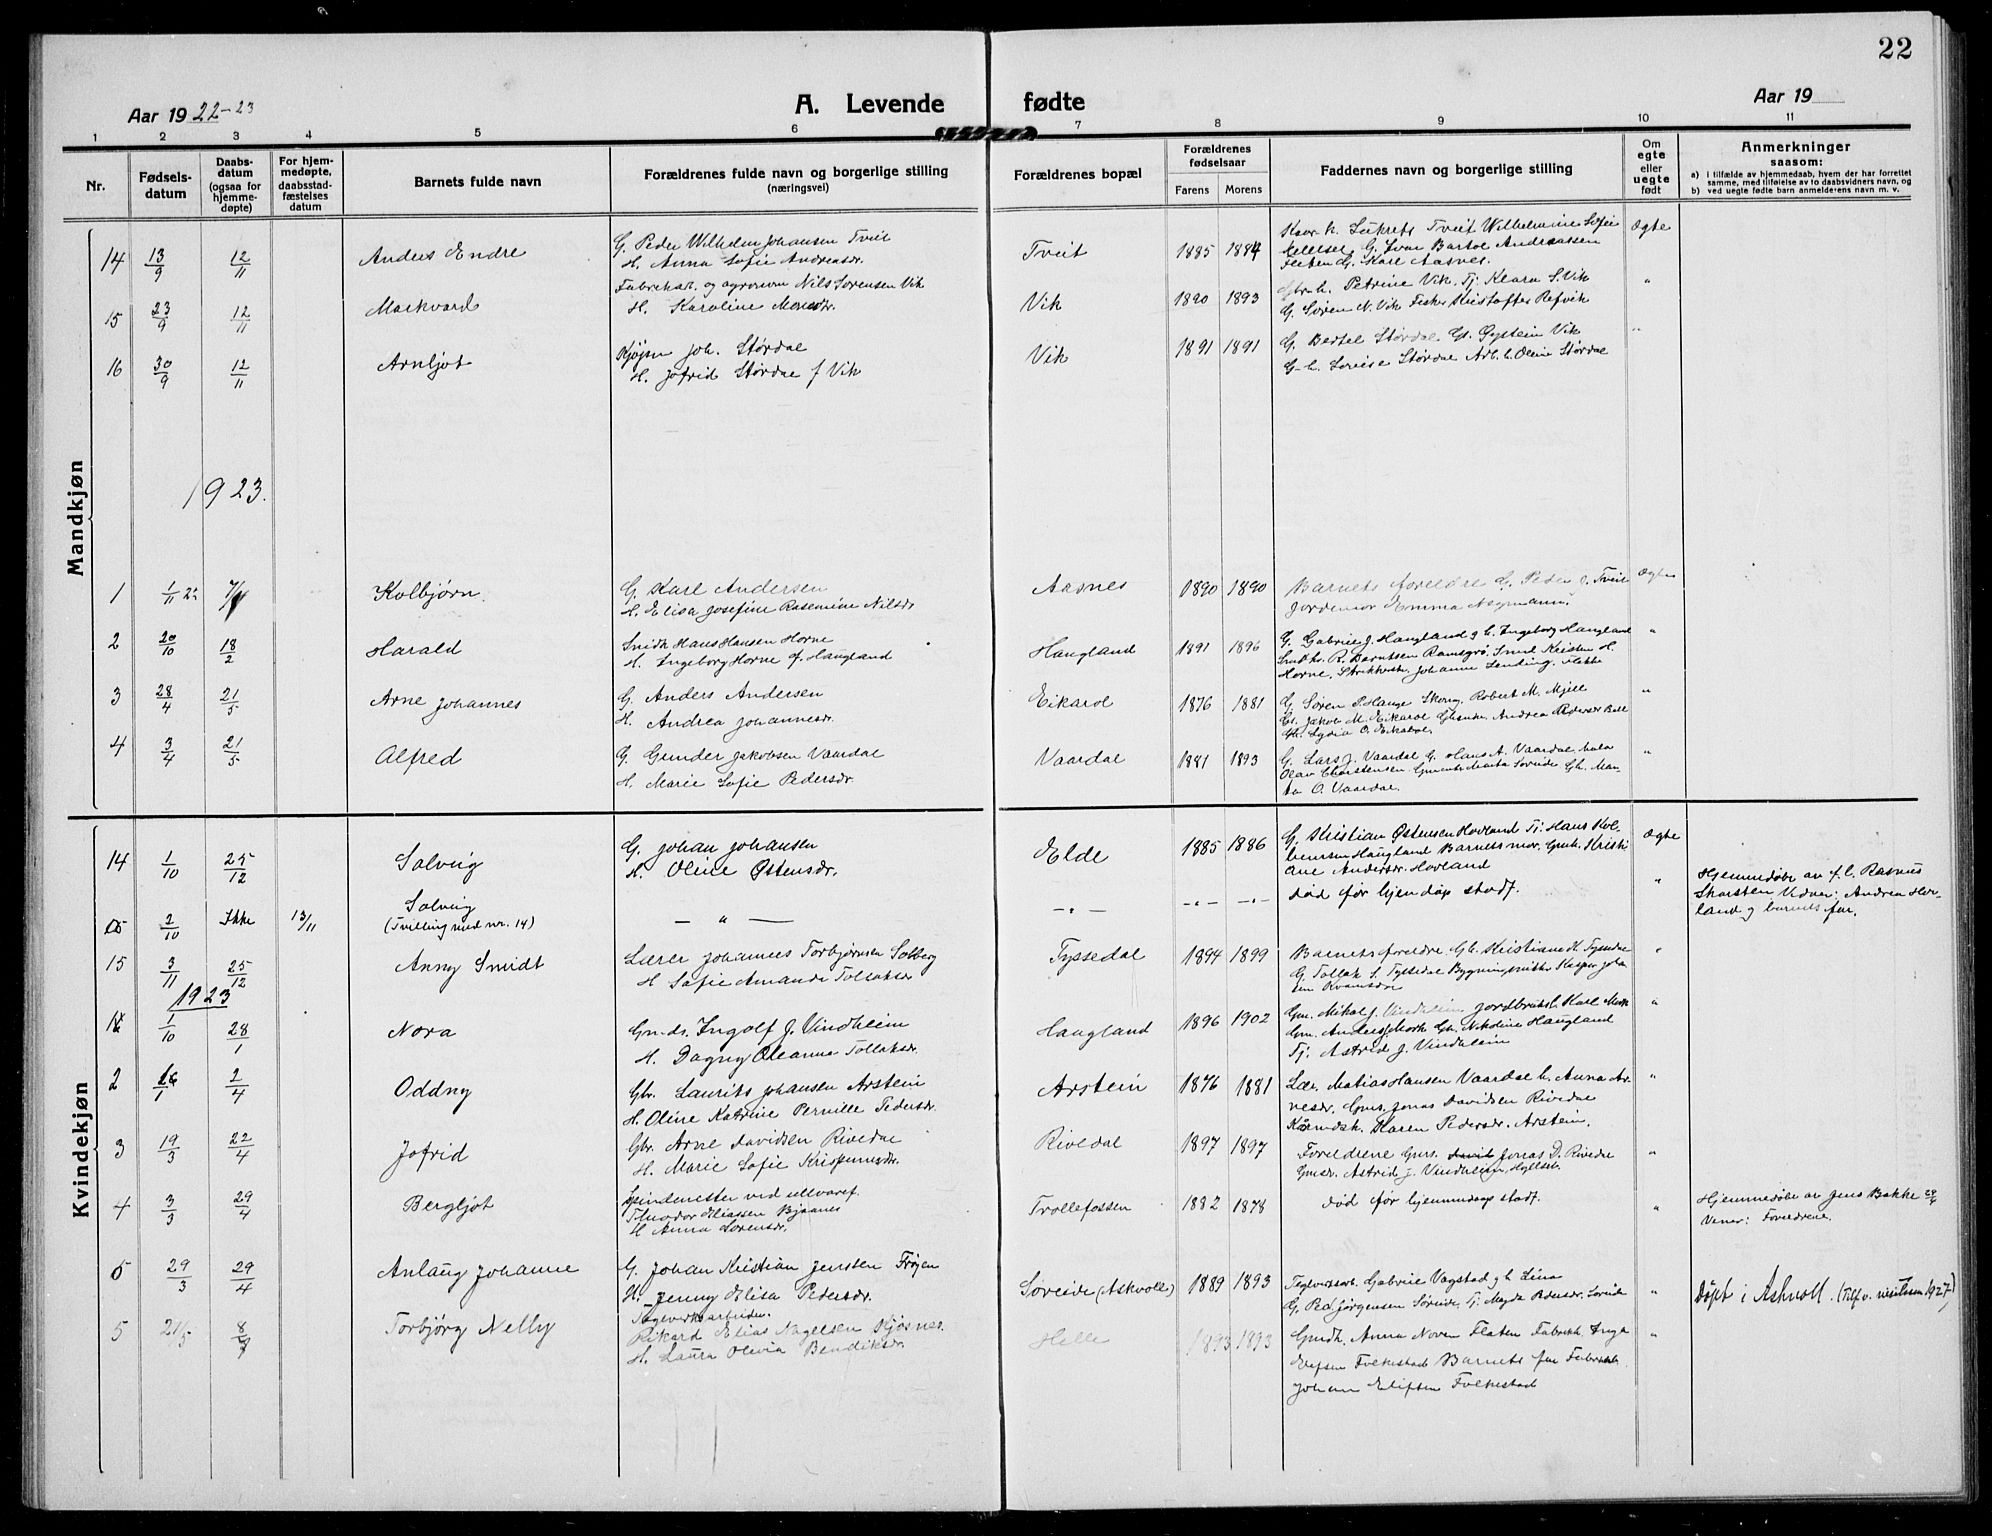 22
Aar 1922-23
A. Levende fødte
Aar 19
1 2 3 4 5 6 7 8 9 10 11
Nr.
Fødsels-
datum
Daabs-
datum
(ogsaa for
hjemme-
døpte)
For hjem-
medøpte,
daabsstad-
fæstelses
datum
Barnets fulde navn
Forældrenes fulde navn og borgerlige stilling
(næringsvei)
Forældrenes bopæl
Forældrenes
fødselsaar
Farens Morens
Faddernes navn og borgerlige stilling
Om
egte
eller
uegte
født
Anmerkninger
saasom:
a) i tilfælde av hjemmedaab, hvem der har forrettet
samme, med tilføielse av to daabsvidners navn, og
b) ved uegte fødte barn anmelderens navn m. v.
Mandkjøn
14 13/9 12/11 Anders Endre
G. Peder Wilhelm Johansen Tveit
H. Anna Sofie Andreasdr.
Tveit 1885 1884
Tveit Wilhelmine Sofie
G. Ivar Bartol Andreassen
G. Karl Aasnes.
Ægte
15 23/9 12/11 Markvard
og agronom Nils Sørensen Vik
H. Karoline Monsdr.
Vik 1890 1893
Petrine Vik. Tj. Klara S. Vik
G. Søren N. Vik Fisker Kristoffer Refvik
"
16 30/9 12/11 Arnljot
Joh. Størdal
H. Jofrid Størdal f Vik
Vik 1891 1891
G. Bertel Størdal. Øystein Vik
Lovise Størdal Oline Størdal
"
1923.
1 1/11 22 Kolbjørn.
G. Karl Andersen
H. Elisa Josefine Rasmine Nilsdr
Aasnes 1890 1890
Barnets foreldre G. Peder J. Tveit
Jordemor Emma
Ægte
2 20/10 18/2 Harald
Smidh Hans Hansen Horne
H. Ingeborg Horne f. Haugland
Haugland 1891 1896
G. Gabriel J. Haugland g h. Ingeborg Haugland
R. Berntsen Ramsgrø. Smed Kristen H.
Horne, Johanne Flekke
"
3 28/4 21/5 Arne Johannes
G. Anders Andersen
H. Andrea Johannesdr.
Eikarol 1876 1881
G. Søren P. Hauge Skong. Robert M. Mjell
Jakob M. Eikarol Andrea Pedersdr
Lydia O. Eikarol.
"
4 3/4 21/5 Alfred
G. Gunder Jakobsen Vaardal
H. Marie Sofie Pedersdr.
Vaardal 1881 1893
G. Lars J. Vaardal G. Hans A. Vaardal.
Olav Christensen Marta Søreide Gh. Mar-
ta O. Vaardal.
"
Kvindekjøn
14 1/10 25/12 Solveig
G. Johan Johansen
H. Oline Østensdr.
Elde 1885 1886
G. Kristian Østensen Hovland Tj: Hans Kol-
bensen Haugland Barnets mor. Gmh. Kristi-
ane Andersdr. Hovland
Ægte
2/10 Ikke 13/11 Solveig
(Tvilling med nr. 14)
— " —
død før hjemdøp stadf.
"
Hjemmedøbt av f. l. Rasmus
Skarsten Vidner: Andrea Hov-
land og barnets far.
15 3/11 25/12 Anny Smidt
Lærer Johannes Torbjørnsen Solberg
H Sofie Amanda Tollaksdr
Tyssedal 1894 1899
Barnets foreldre. Gh. Kristiane H. Tyssedal
G. Tollak S. Tyssedal Kasper Joha
"
1923
1 1/10 28/1 Nora
Gm.ds. Ingolf J. Vindheim
H. Dagny Oleanna Tollaksdr.
Haugland 1896 1902
Gm. Mikal J. Vindheim. Jordbruksk. Karl Mork
Gm. Anders Mork Gh. Nikoline Haugland
Tj: Astrid J. Vindheim
"
2 16/1 2/4 Oddny
Gbr. Laurits Johansen Arstein
H. Oline Katrine Pernille Pedersdr.
Arstein 1876 1881
Lær. Matias Hansen Vaardal h. Anna Ar-
nesdr. Gms. Jonas Davidsen Rivedal
Karen Pedersdr. Arstein.
"
3 19/3 22/4 Jofrid
Gbr. Arne Davidsen Rivedal
H. Marie Sofie
Rivedal 1897 1897
Foreldrene Gms. Jonas D. Rivedal
Gmdr. Astrid J. Vindheim,
"
4 3/3 29/4 Bergljot
Spindemester ved ullvaref.
Theodor Eliassen Bjaanes
H Anna Sørensdr.
Trollefossen 1882 1878
død før hjemmdaap stadf.
"
Hjemmedøbt av Jens Bakke
Vidner: Foreldrene.
5 29/3 29/4 Anlaug Johanne
G. Johan Kristian Jensten Frøyen
H. Jenny Elisa Pedersdr.
Søreide (Askvoll) 1889 1893
Teglverksarb. Gabriel Vagstad g h. Lina
G. Ped. Jørgensen Søreide, Tj: Magda Pedersdr. Søreide
"
Døpt i Askvoll. (Tilf. v. visitasen 1927)
5 21/5 8/7 Torbjørg Nelly
Teglverksarbeider.
Rikard Elias Nagelsen Kjøsnes.
H. Laura Olivia Bendiksdr.
Helle 1893 1893
Gmdh. Anna Noven Flaten Fabrikk. Inga
Elefsen Folkestad Barnets far
Johan Eliffsen Folkestad
"